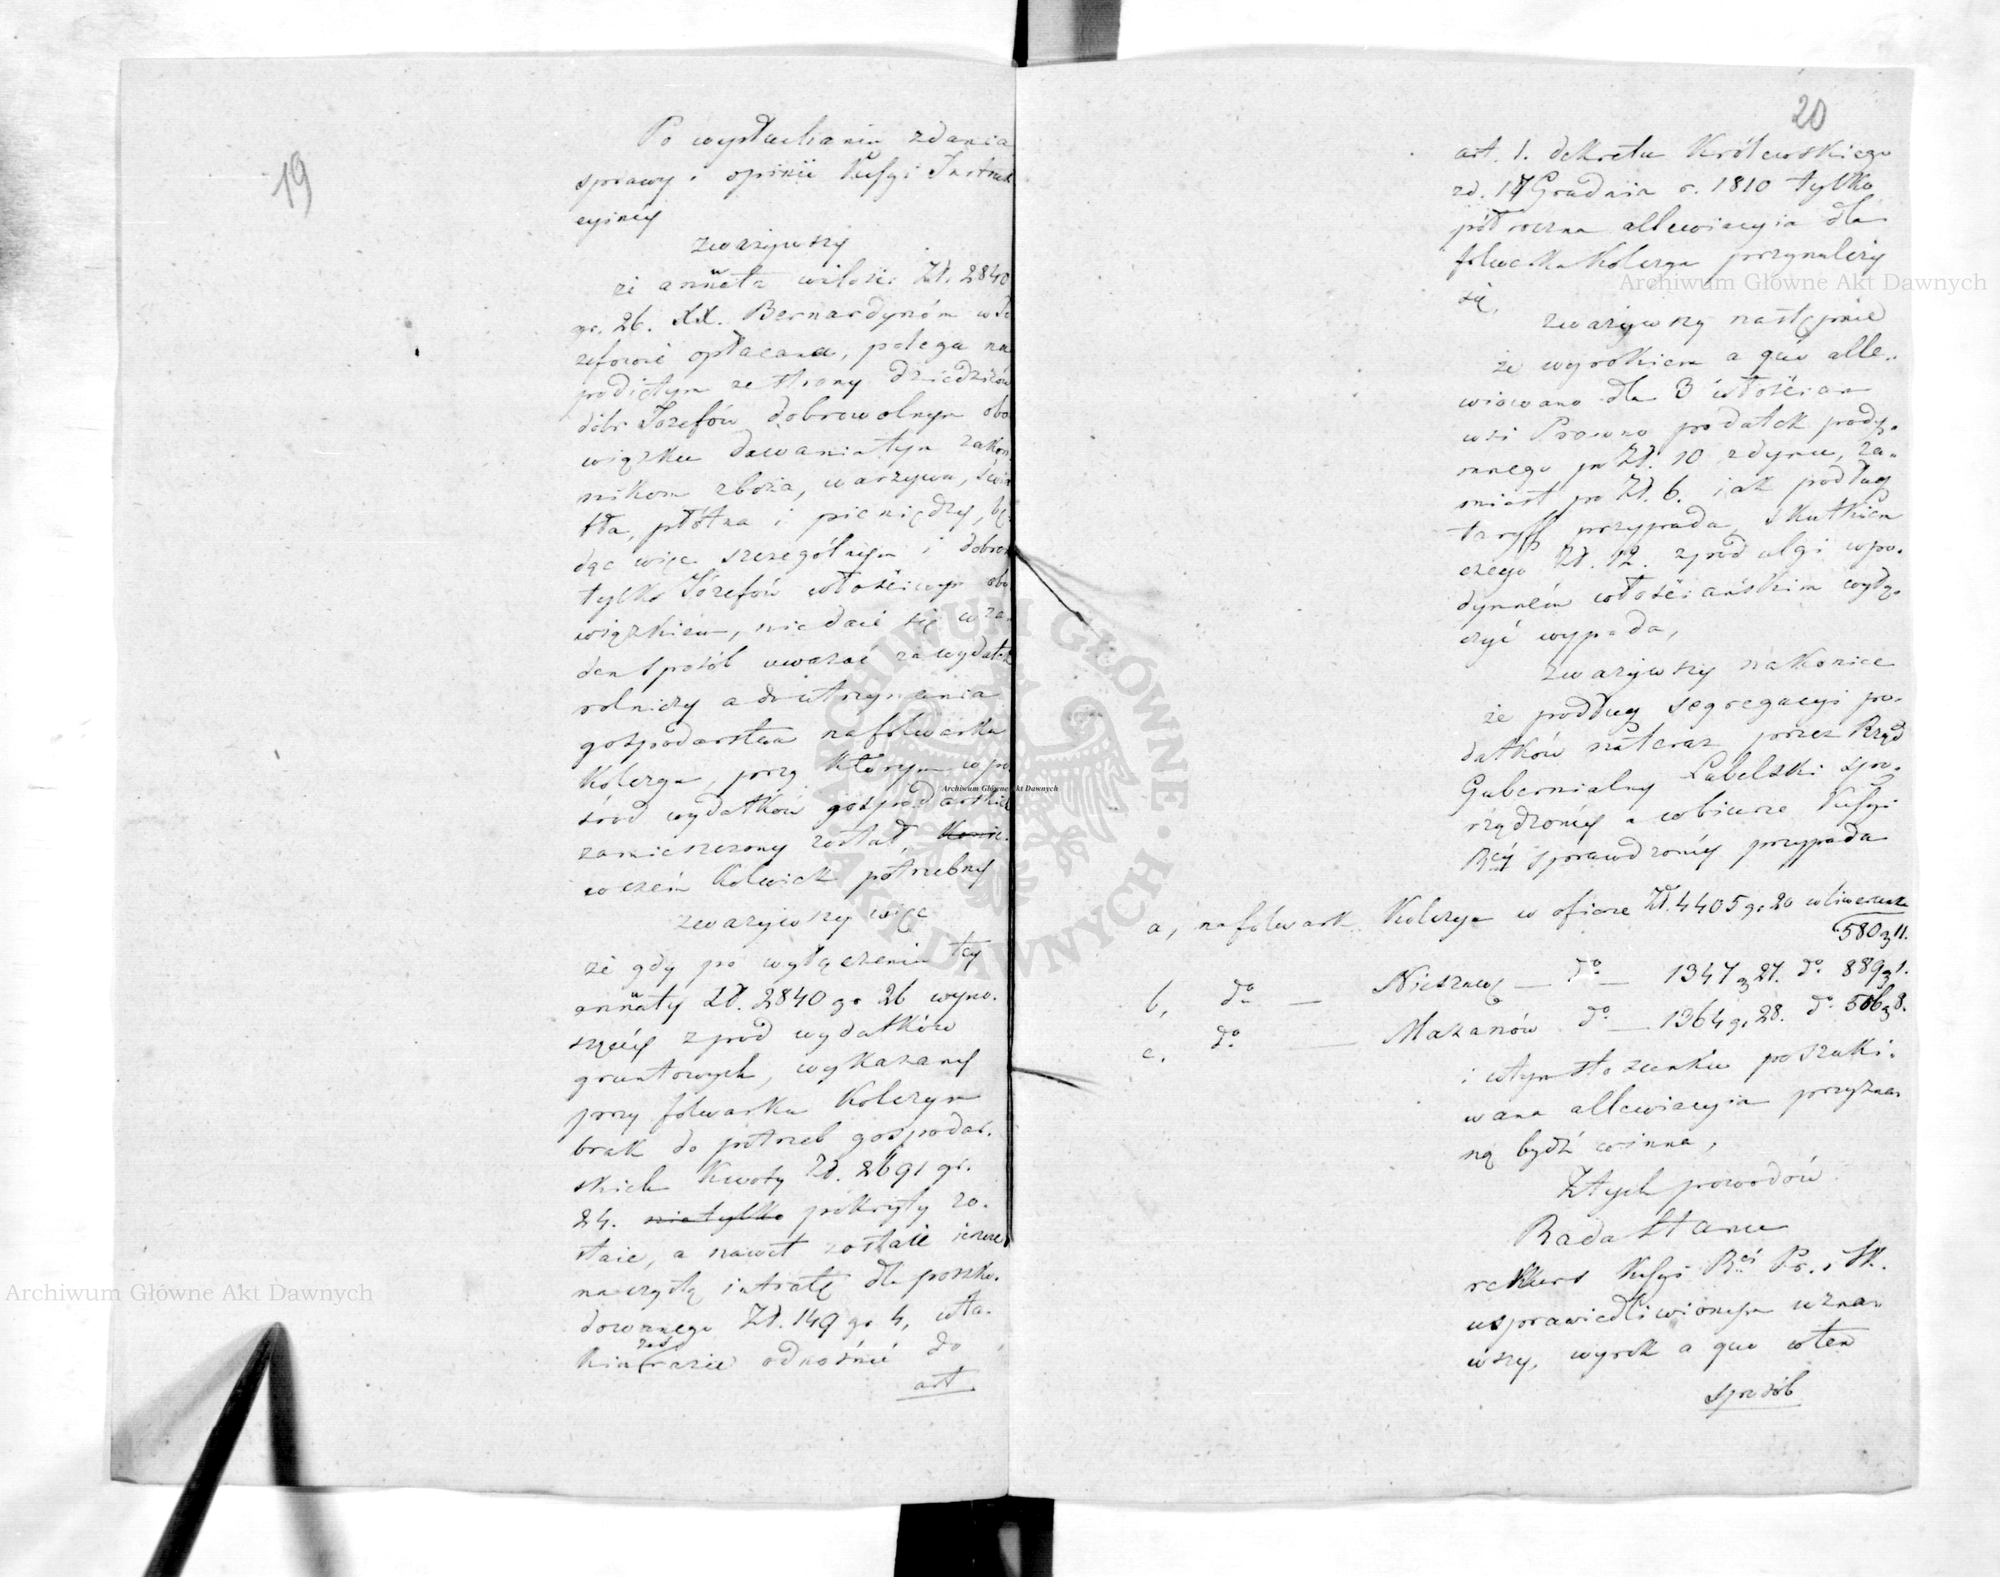 19
Po wysłuchaniu zdania
sprawy i opinii Kissyi Instruk
cyinéy
zważywszy
że annata wilości Zł. 2840
gr. 26. XX. Bernardynóm w Jó
zefowie opłacana, polega na
podiętym ze strony dziedziców
dóbr Józefów dobrowolnym obo
wiązku dawania tym zakon
nikom zboża, warzywa, świa
tła, płótna i pieniędzy, bę
dąc więc szczególnym i dobrom
tylko Józefów właściwym obo
wiązkiem, nie daie się w ża
den sposób uważać za wydatek
rolniczy a do utrzymania
gospodarstwa na folwarku
Kolczyn, przy którym wpo
śród wydatków gospodarskich
zamieszczony został,
wczém kolwiek potrzebny
zważywszy więc
że gdy po wyłączeniu téy
annaty Zł. 2840 gr 26 wyno.
szącéy z pod wydatków
gruntowych, wykazany
przy folwarku Kolczyn
brak do potrzeb gospodar.
skich kwoty Zł. 2691 gr.
24. nietylko pokryty zo.
staie, a nawet zostaie ieszcze
na czystą intratę dla poszko.
dowanego Zł. 149 gr 4, wta.
kim zaś razie odnośnie do
art
20
art. 1. dekretu Królewskiego
zd. 17 Grudnia r. 1810 tylko
półroczna allewiacyia dla
folwarku Kolczyn przynależy
się,
zważywszy następnie
że wyrokiem a quo alle..
wiowano dla 3 włościan
wsi Prawno podatek pody.
mnego po Zł. 10 z dymu, za.
miast po Zł. 6. iak podług
taryff przypada, skutkiem
czego Zł. 12. zpod ulgi w po.
dymném włościańskim wyłą.
czyć wypada,
zważywszy nakoniec
że podług segregacyi po.
datków na teraz przez Rząd
Gubernialny Lubelski spo.
rządzonéy a w biurze Kissyi
Rcéy sprawdzonéy przypada
a, na folwark Kolczyn w ofierze Zł. 4405 gr 20 w liwerunku
580 g 11.
b, do — Nieszawę — do — 1347 g 27. do 889 g 1.
c. do — Mazanów do — 1364 g. 28. do 506 g 8.
i w tym stosunku poszuki.
wana allewiacyia przyzna.
ną bydź winna,
Z tych powodów
Rada Stanu
rekurs Kissyi Rcéi Pr. i Sk.
usprawiedliwionym uzna.
wszy, wyrok a quo wten
sposób
Archiwum Główne Akt Dawnych
Archiwum Główne Akt Dawnych
Archiwum Główne Akt Dawnych
ARCHIWUM GŁÓWNE · AKT DAWNYCH ·